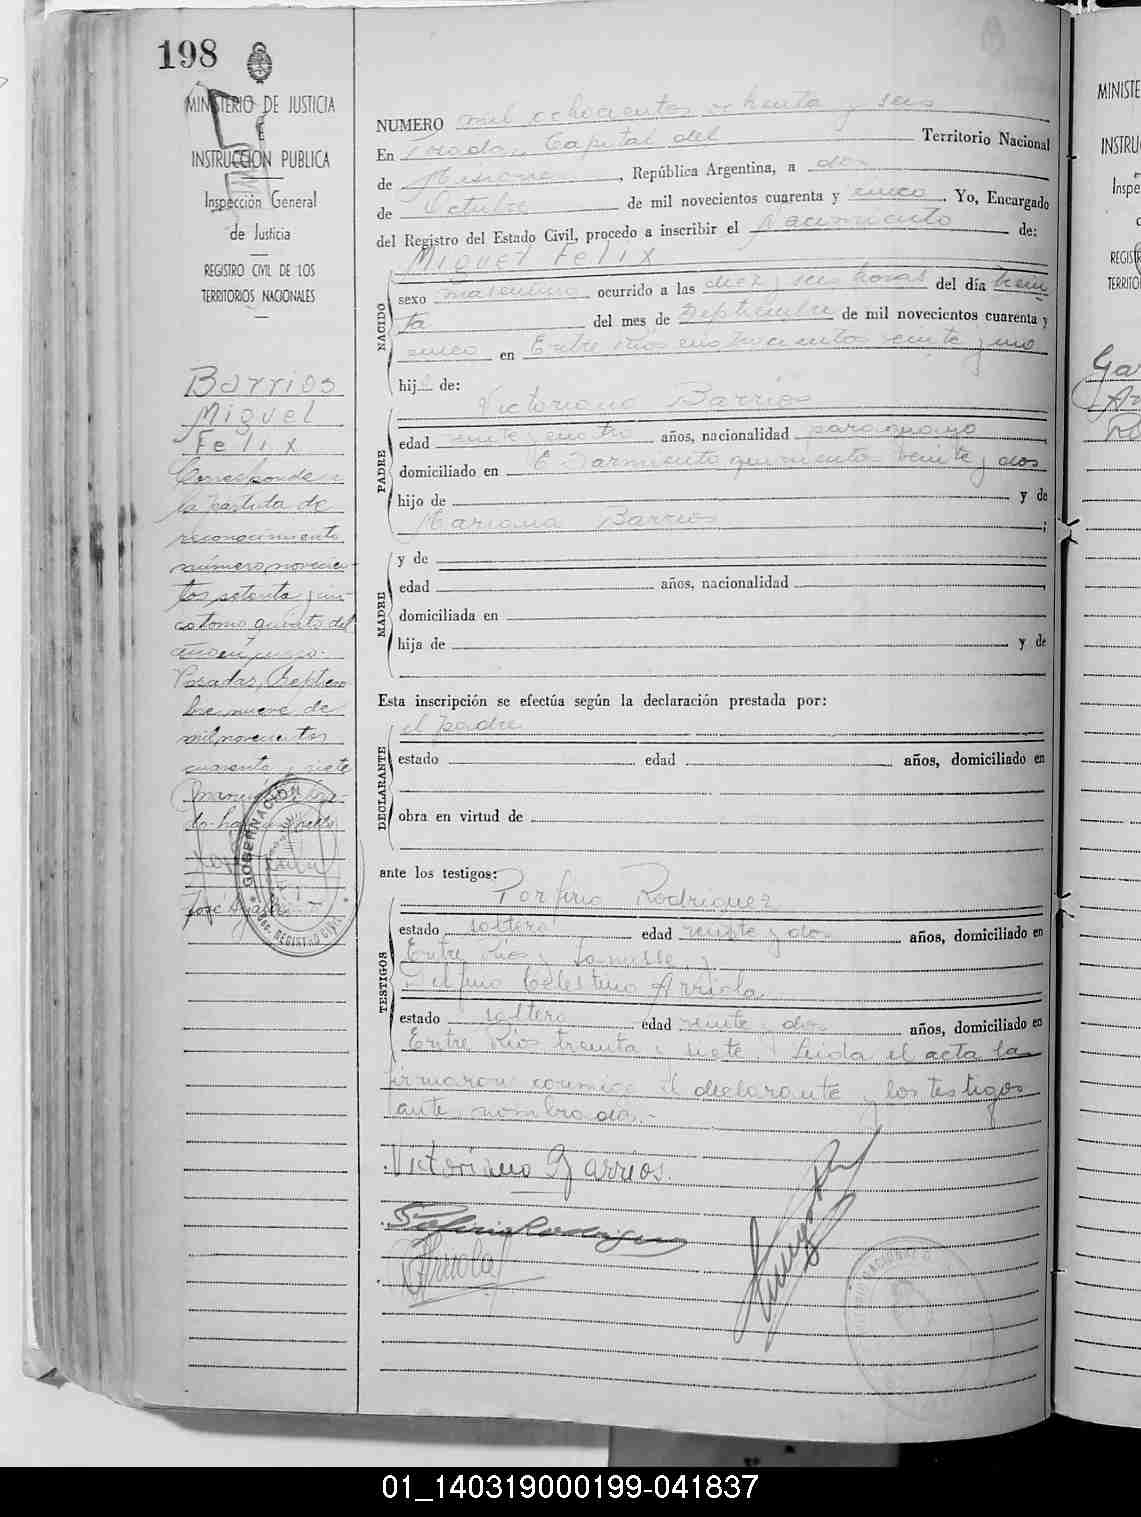 198
MINISTERIO DE JUSTICIA
E
INSTRUCCION PUBLICA
Inspección General
de Justicia
REGISTRO CIVIL DE LOS
TERRITORIOS NACIONALES
Barrios
Miguel
Felix
Corresponde a
la partida de
reconocimiento
número novecien-
tos setenta y cin-
co tomo quinto del
año en curso.
Posadas, Septiem
bre nueve de
mil novecientos
cuarenta y siete
GOBERNACION
REGISTRO CIVIL
José
NUMERO mil ochocientos ochenta y seis
En Posadas, Capital del Territorio Nacional
de Misiones, República Argentina, a dos
de Octubre de mil novecientos cuarenta y cinco. Yo, Encargado
del Registro del Estado Civil, procedo a inscribir el Nacimiento de:
NACIDO
Miguel Felix
sexo masculino ocurrido a las diez y seis horas del día trein
ta del mes de Septiembre de mil novecientos cuarenta y
cinco en Entre Rios cuatrocientos veinte y uno
hij de:
PADRE
Victoriano Barrios
edad veinte y cuatro años, nacionalidad paraguayo
domiciliado en Sarmiento quinientos veinte y dos
hijo de y de
Mariana Barrios ;
MADRE
y de
edad años, nacionalidad
domiciliada en
hija de y de
Esta inscripción se efectúa según la declaración prestada por:
DECLARANTE
el padre
estado edad años, domiciliado en
obra en virtud de
ante los testigos:
TESTIGOS
Porfirio Rodriguez
estado soltero edad veinte y dos años, domiciliado en
Entre Rios y
Delfino Celestino Arriola
estado soltero edad veinte y dos años, domiciliado en
Entre Rios treinta y siete. Leida el acta la
firmaron conmigo el declarante y los testigos
ante nombrados.-
Victoriano Barrios.
Rodriguez
Arriola
MINISTE
INSTRU
Inspe
REGIST
TERRITO
01_140319000199-041837